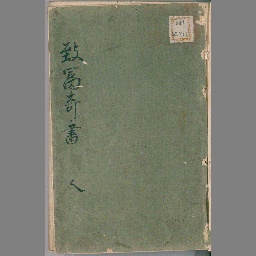 致富奇書
人